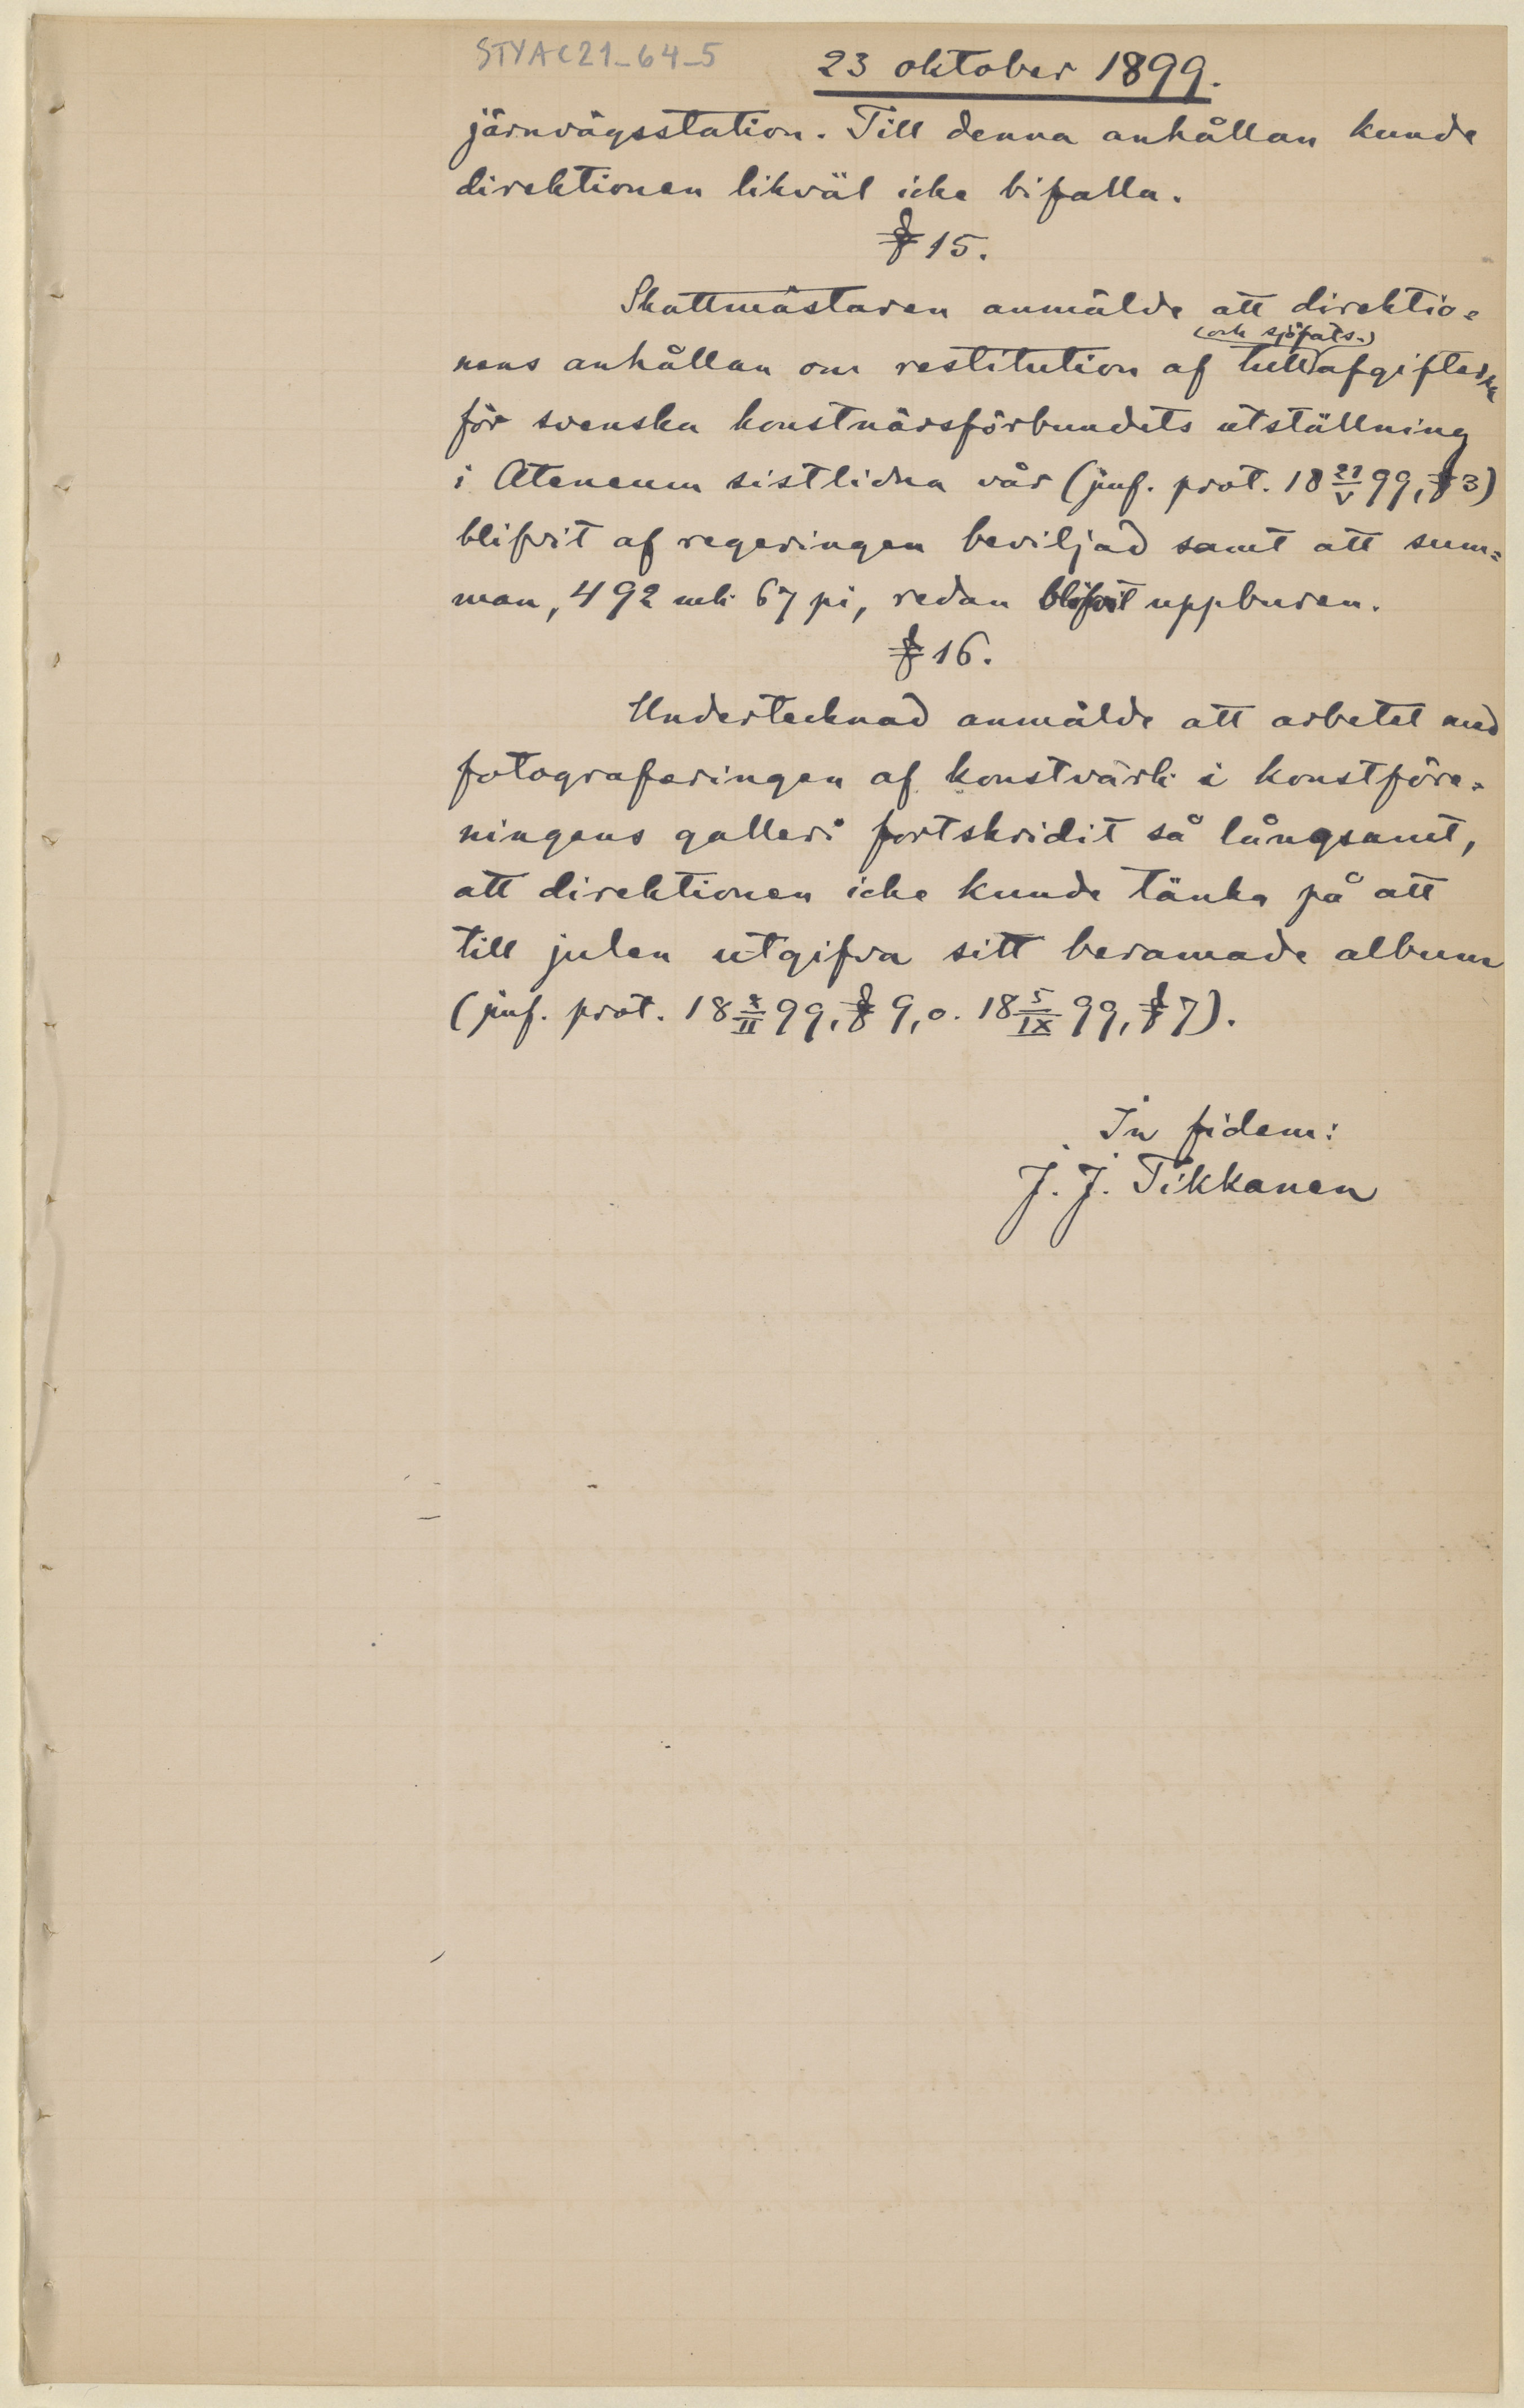 STYAC21_64_5
23 oktober 1899.
järnvägsstation. Till denna anhållan kunde
direktionen likväl icke bifalla.
§ 15.
Skattmästaren anmälde att direktio=
(och sjöfats-)
nens anhållan om restitution af tullafgifterna
för svenska konstnärsförbundets utställning
i Ateneum sistlidna vår (jmf. prot. 18 21/V 99, § 3)
blifvit af regeringen beviljad samt att sum=
man, 492 mk 67 pi, redan blifvit uppburen.
§ 16.
Undertecknad anmälde att arbetet med
fotograferingen af konstvärk i konstföre=
ningens galleri fortskridit så långsamt,
att direktionen icke kunde tänka på att
till julen utgifva sitt beramade album
(jmf. prot. 18 /II 99, § 9, o. 18 5/IX 99, § 7).
In fidem:
J. J. Tikkanen